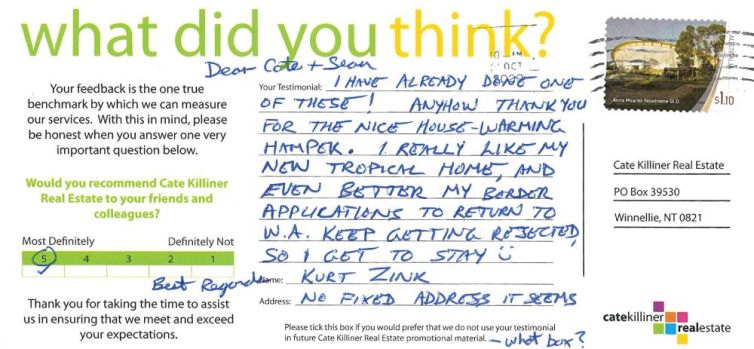 what did you think?
Your feedback is the one true
benchmark by which we can measure
our services. With this in mind, please
be honest when you answer one very
important question below.
Would you recommend Cate Killiner
Real Estate to your friends and
colleagues?
Most Definitely Definitely Not
5 4 3 2 1
Thank you for taking the time to assist
us in ensuring that we meet and exceed
your expectations.
Dear Cate + Sean
Your Testimonial: I HAVE ALREADY DONE ONE
OF THESE! ANYHOW THANK YOU
FOR THE NICE HOUSE-WARMING
HAMPER. I REALLY LIKE MY
NEW TROPICAL HOME, AND
EVEN BETTER MY BORDER
APPLICATIONS TO RETURN TO
W.A. KEEP GETTING REJECTED,
SO I GET TO STAY ☺
Best Regards
Name: KURT ZINK
Address: NO FIXED ADDRESS IT SEEMS
Please tick this box if you would prefer that we do not use your testimonial
in future Cate Killiner Real Estate promotional material. – what box?
AUSTRALIA
Anna Meares Velodrome QLD
$1.10
Cate Killiner Real Estate
PO Box 39530
Winnellie, NT 0821
catekilliner
realestate